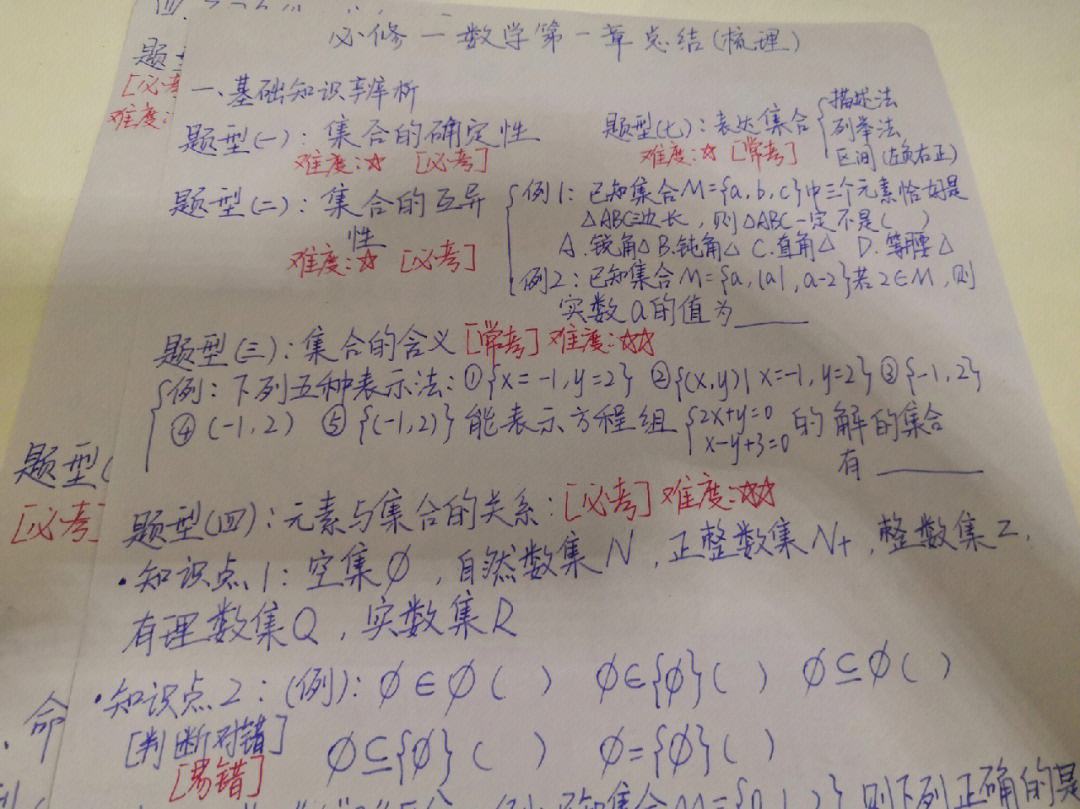 必修一数学第一章总结(梳理)
一、基础知识辨析
题型(一)：集合的确定性
难度:☆ [必考]
题型(七)：表达集合
描述法
列举法
区间(左负右正)
难度:☆ [常考]
题型(二)：集合的互异
性
难度:☆ [必考]
例1：已知集合M={a,b,c}中三个元素恰好是
△ABC三边长，则△ABC一定不是( )
A.锐角△ B.钝角△ C.直角△ D.等腰△
例2：已知集合M={a,|a|,a-2}若2∈M,则
实数a的值为____
题型(三)：集合的含义[常考]难度:☆☆
例：下列五种表示法:①{x=-1,y=2} ②{(x,y)|x=-1,y=2} ③{-1,2}
④(-1,2) ⑤{(-1,2)}能表示方程组{2x+y=0 x-y+3=0的解的集合
有____
题型(四)：元素与集合的关系:[必考]难度:☆☆
·知识点1：空集∅，自然数集N，正整数集N+，整数集Z，
有理数集Q，实数集R
·知识点2：(例)：∅∈∅( ) ∅∈{∅}( ) ∅⊆∅( )
[判断对错] ∅⊆{∅}( ) ∅={∅}( )
[易错]
题
[必考
难度:
题型(
[必考]
命
则下列正确的是